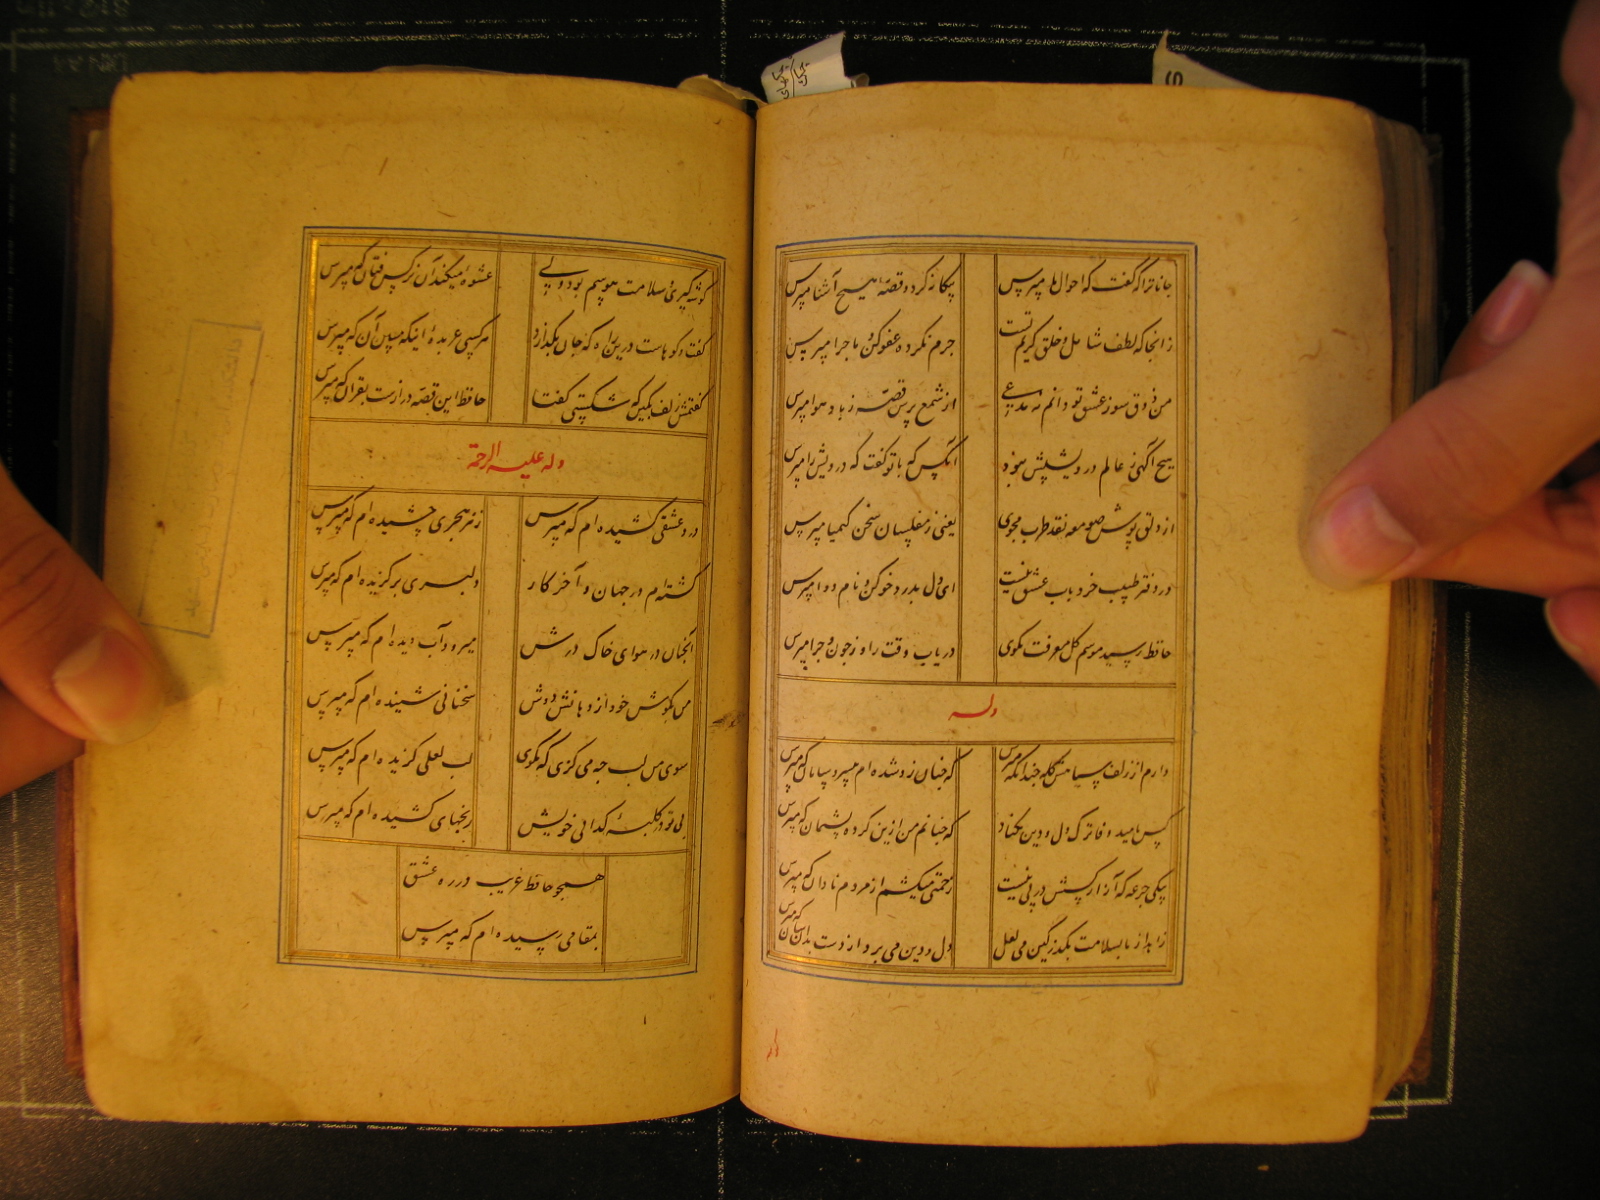 جانا ترا که گفت که احوال ما مپرس
بیکانه کرد و قصهٔ هیچ آشنا مپرس
زانجا که لطف شامل و خلق کریم تست
جرم نکرده عفو کن و ماجرا مپرس
من ذوق سوز عشق تو دانم نه مدعی
از شمع پرس قصه ز باد هوا مپرس
هیچ آگهی ز عالم درویشیش نبود
آنکس که با تو گفت که درویش را مپرس
از دلق پوش صومعه نقد طرب مجوی
یعنی ز مفلسان سخن کیمیا مپرس
در دفتر طبیب خرد باب عشق نیست
ای دل بدرد خو کن و نام دوا مپرس
حافظ رسید موسم کل معرفت مکوی
دریاب وقت را و ز چون و چرا مپرس
وله
دارم از زلف سیاهش کله چندانکه مپرس
که چنان زو شده ام بی سر و سامان که مپرس
کس بامید وفا ترک دل و دین مکناد
که چنانم من ازین کرده پشیمان که مپرس
بیکی جرعه که آزار کسش در پی نیست
زحمتی میکشم از مردم نادان که مپرس
زاهد از ما بسلامت بکذر کین می لعل
دل و دین می برد از دست بدان سان که مپرس
گوشه گیری و سلامت هوسم بود ولی
عشوه میکند آن نرکس فتان که مپرس
گفت و کوهاست درین راه که جان بکدازد
هر کسی عربده اینکه مبین آن که مپرس
گفتمش زلف بکین که شکستی گفتا
حافظ این قصه درازست بقرآن که مپرس
وله علیه الرحمة
درد عشقی کشیده ام که مپرس
زهر هجری چشیده ام که مپرس
گشته ام در جهان و آخر کار
دلبری برکزیده ام که مپرس
آنچنان در هوای خاک درش
میرود آب دیده ام که مپرس
من بکوش خود از دهانش دوش
سخنانی شنیده ام که مپرس
سوی من لب چه می کزی که مکوی
لب لعلی کزیده ام که مپرس
بی تو در کلبهٔ کدائی خویش
رنجهای کشیده ام که مپرس
همچو حافظ غریب در ره عشق
بمقامی رسیده ام که مپرس